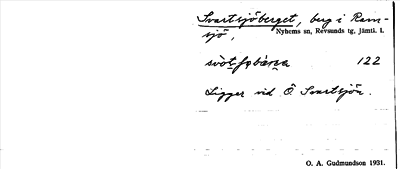 Svartsjöberget, berg i Ram-
sjö, Nyhems sn, Revsunds tg, Jämtl. l.
122
Ligger vid Ö Svartsjön.
O. A. Gudmundson 1931.